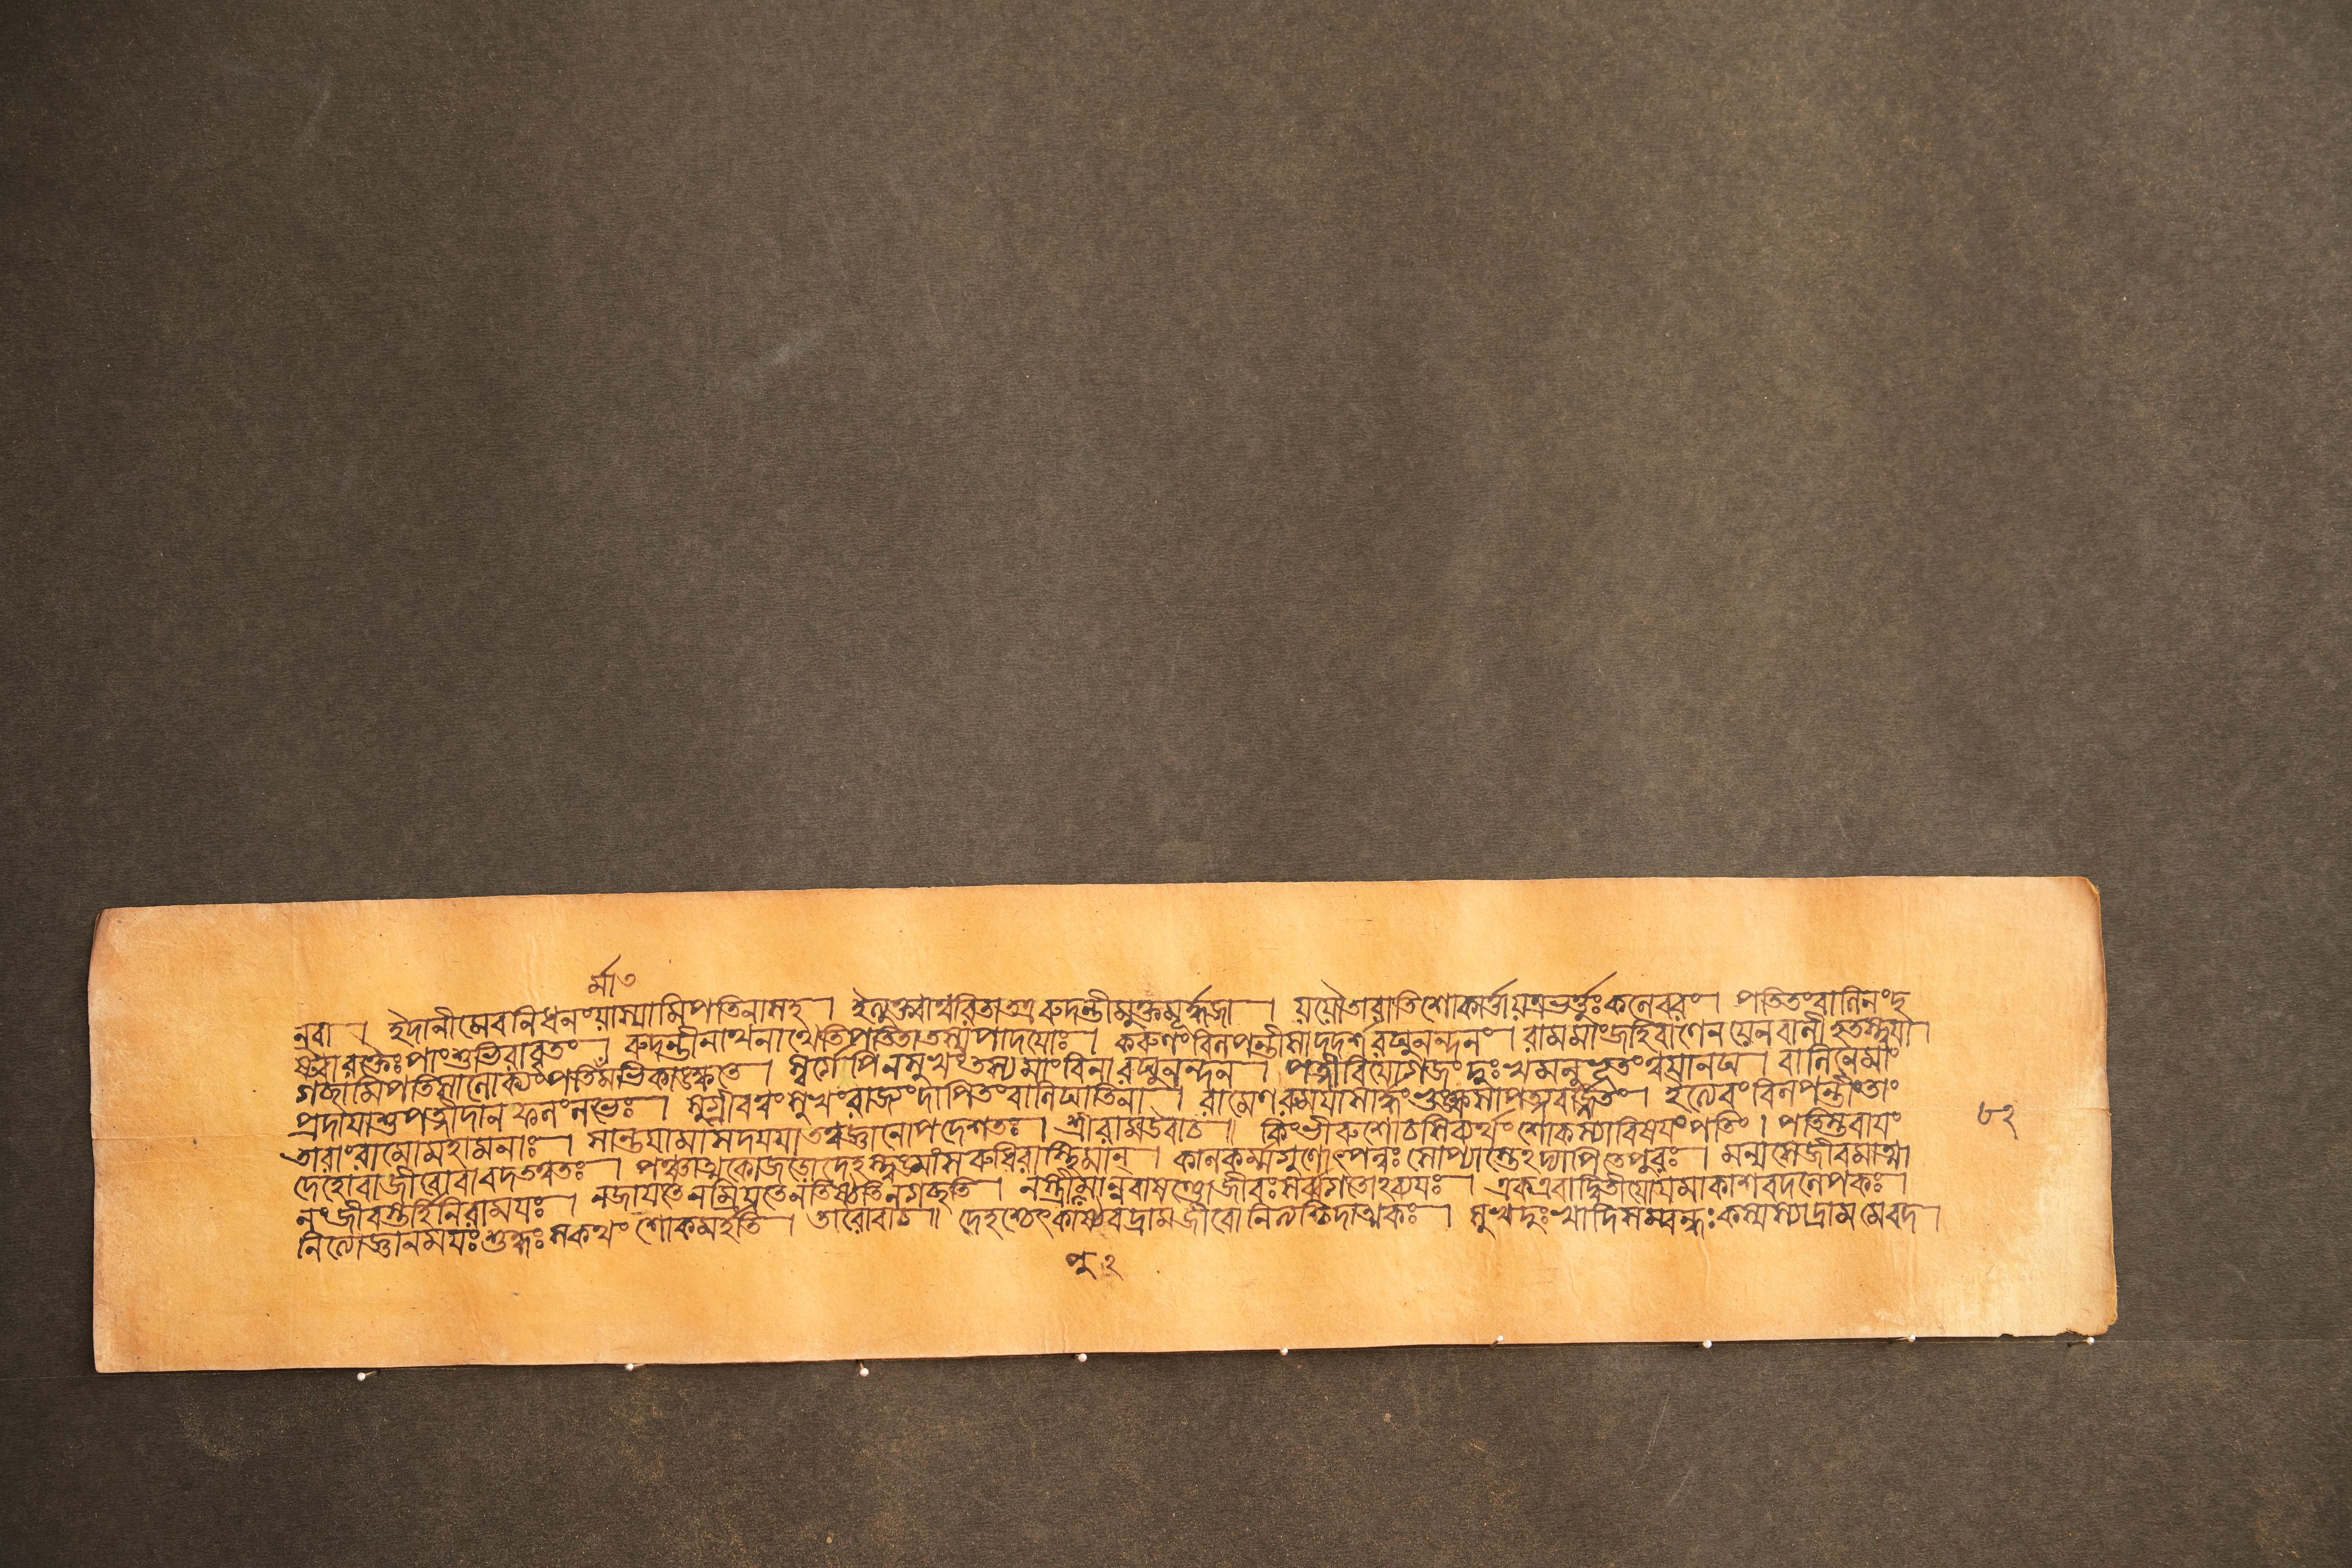 র্মাত
নবা । ইদানীমেবনিধনংযাস্যামিপতিনাসহ । ইত্যুক্ত্বাত্বরিতাতত্ররুদন্তীমুক্তমূর্দ্ধজা । যযৌতারাতিশোকার্ত্তাযত্রভর্ত্তুঃকলেবরং। পতিতংবালিনংদৃ
ষ্ট্বারক্তৈঃপাংশুভিরাবৃতং । রুদন্তীনাথনাথেতিপতিতাতস্যপাদযোঃ । করুণংবিলপন্তীসাদদর্শরঘুনন্দনং । রামমাংজহিবাণেনযেনবালীহতস্ত্বযা।
গচ্ছামিপতিসালোক্যংপতিমভিকাঙ্ক্ষতে । স্বর্গেপিনসুখংতস্যমাংবিনারঘুনন্দন । পত্নীবিযোগজংদুঃখমনুভূতংত্বযানঘ । বালিনেমাং
প্রদাযাশুপত্নীদানফলংলভেঃ । সুগ্রীবত্বংসুখংরাজ্যংদাপিতংবালিঘাতিনা । রামেণরুমযাসার্দ্ধংভুঙ্ক্ষ্বসাপত্নবর্জ্জিতং। ইত্যেবংবিলপন্তীংতাং
তারাংরামোমহামনাঃ । সান্ত্বযামাসদযযাতত্ত্বজ্ঞানোপদেশতঃ । শ্রীরামউবাচ॥ কিংভীরুশোচসিব্যর্থংশোকস্যাবিষযংপতিং। পতিস্তবাযং
দেহোবাজীবোবাবদতত্ত্বতঃ । পঞ্চাত্মকোজড়োদেহস্ত্বঙ্মাংসরুধিরাস্থিমান্ । কালকর্ম্মগুণোৎপন্নঃসোপ্যাস্তেঽদ্যাপিতেপুরঃ । মন্যসেজীবমাত্মা
নংজীবস্তর্হিনিরামযঃ । নজাযতেনম্রিযতেনতিষ্ঠতিনগচ্ছতি । নস্ত্রীপুমান্নবাষণ্ঢোজীবঃসর্ব্বগতোঽব্যযঃ । একএবাদ্বিতীযোযমাকাশবদলেপকঃ।
নিত্যোজ্ঞানমযঃশুদ্ধঃসকথংশোকমর্হতি । তারোবাচ॥ দেহশ্চেৎকাষ্ঠবদ্রামজীবোনিত্যশ্চিদাত্মকঃ । সুখদুঃখাদিসম্বন্ধঃকস্যস্যাদ্রামমেবদ।
৮২
পু ২